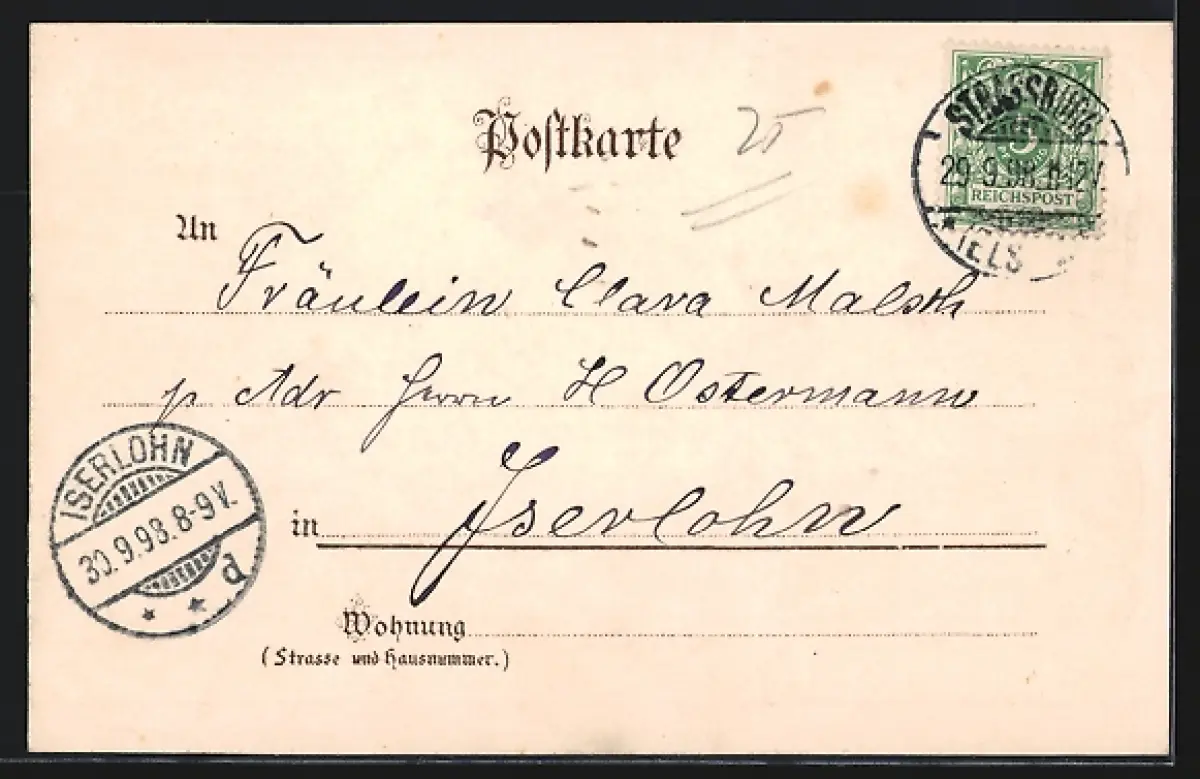 Postkarte
25
STRASSBURG
29.9.98.11-12V.
* (ELS
5
REICHSPOST
An
Fräulein Clara Malsch
p Adr Herrn H Ostermann
in Iserlohn
ISERLOHN
30.9.98.8-9V.
* * d
Wohnung
(Strasse und Hausnummer.)